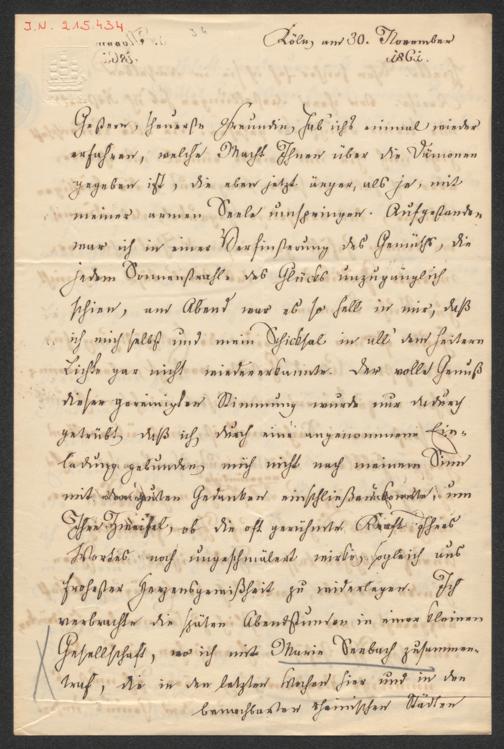 I.N. 215.434
Köln, am 30. November
1861.
Gestern, theuerste Freundin, hab ich's einmal wieder
erfahren, welche Macht Ihnen über die Dämonen
gegeben ist, die eben jetzt ärger, als je, mit
meiner armen Seele umspringen. Aufgestanden
war ich in einer Verfinsterung des Gemüths, die
jedem Sonnenstrahle des Glücks unzugänglich
schien, am Abend war es so hell in mir, daß
ich mich selbst und mein Schicksal in all' dem heitern
Lichte gar nicht wiedererkannte. Der volle Genuß
dieser gereinigten Stimmung wurde nur dadurch
getrübt, daß ich, durch eine angenommene Ein-
ladung gebunden, mich nicht nach meinem Sinn
mit guten Gedanken einschließen konnte, um
Ihre Zweifel, ob die oft gerühmte Kraft Ihres
Wortes noch ungeschmälert wirke, sogleich aus
frohester Herzensgewißheit zu widerlegen. Ich
verbrachte die späten Abendstunden in einer kleinen
Gesellschaft, wo ich mit Marie Seebach zusammen-
traf, die in den letzten Wochen hier und in den
benachbarten rheinischen Städten